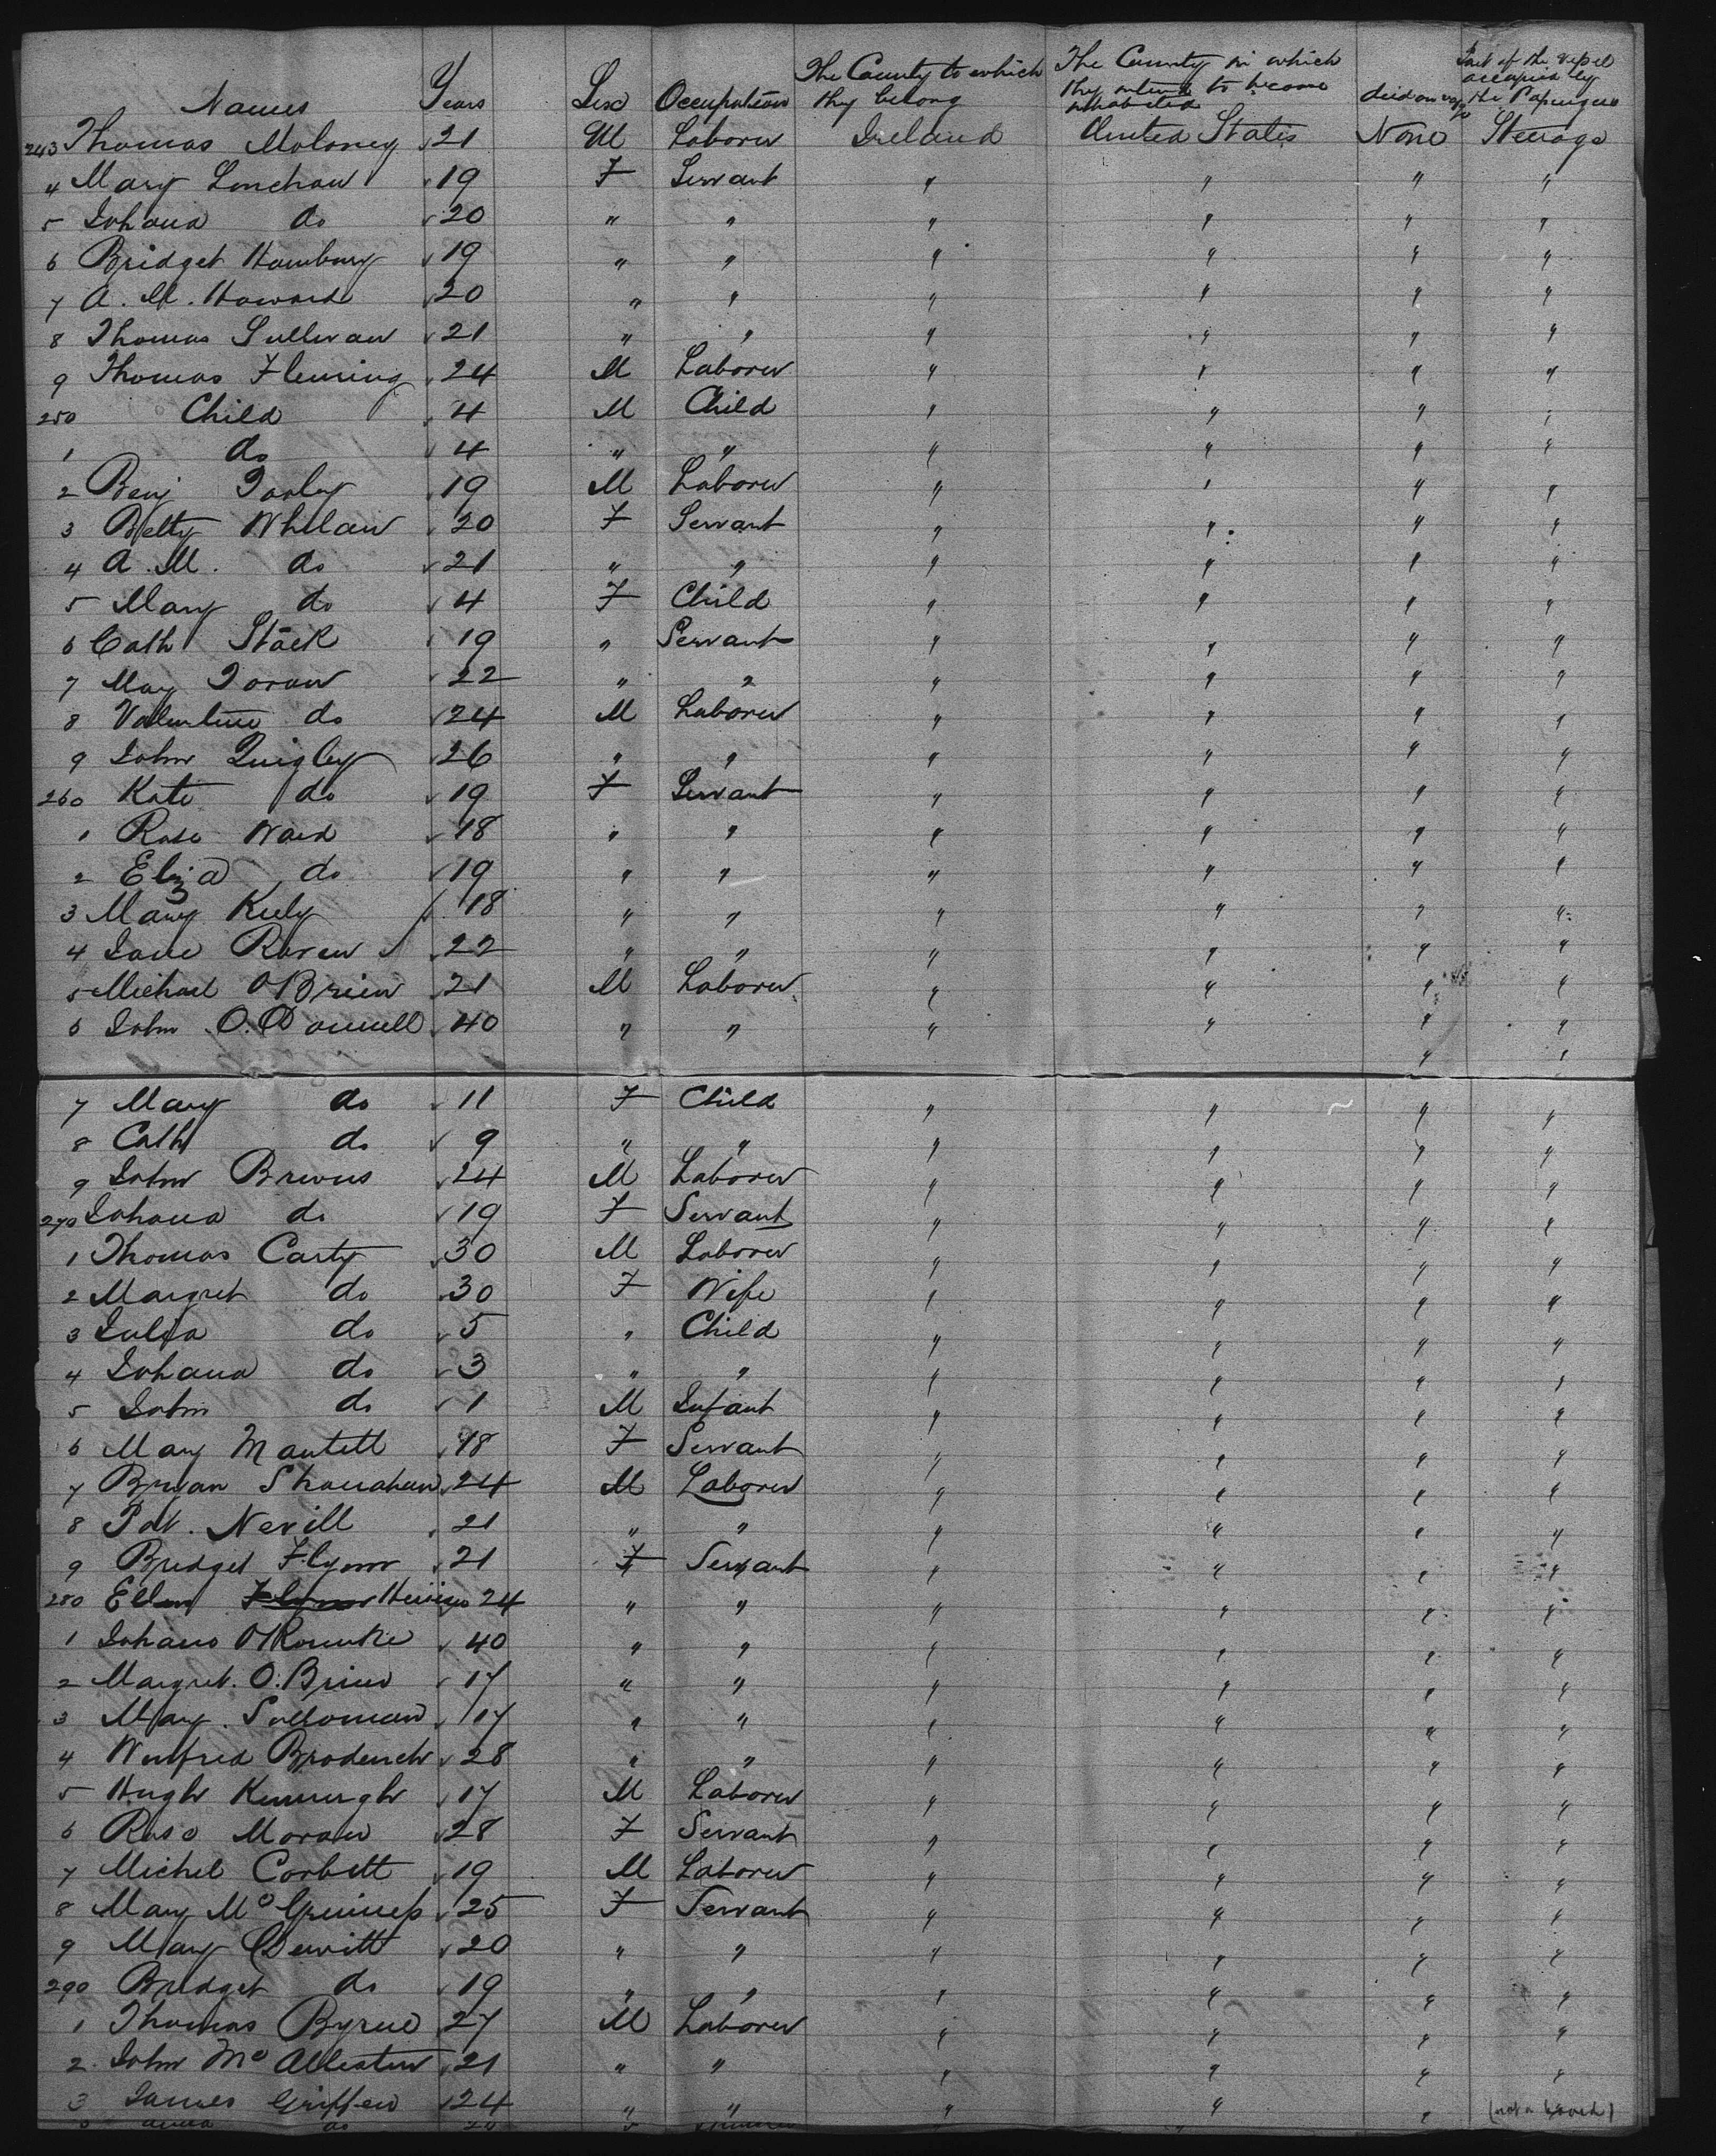 Names Years Sex Occupation The County to which they belong The County in which they intend to become inhabited died on voyg Part of the vessel occupied by the Pasengers
243 Thomas Moloney 21 M Laborer Ireland United States None Steerage
4 Mary Lenehan 19 F Servant " " " "
5 Johana do 20 " " " " " "
6 Bridget 19 " " " " " "
7 A. M. Howard 20 " " " " " "
8 Thomas Sullivan 21 " " " " " "
9 Thomas Fleming 24 M Laborer " " " "
250 Child 4 M Child " " " "
1 do 4 " " " " " "
2 Benj 19 M Laborer " " " "
3 Betty Whelan 20 F Servant " " " "
4 A. M. do 21 " " " " " "
5 Mary do 4 F Child " " " "
6 Cath Stack 19 " Servant " " " "
7 May Doran 22 " " " " " "
8 Valentine do 24 M Laborer " " " "
9 John Quigley 26 " " " " " "
260 Kate do 19 F Servant " " " "
1 Rose Ward 18 " " " " " "
2 Eliza do 19 " " " " " "
3 Mary Kiely 18 " " " " " "
4 Jane 22 " " " " " "
5 Michael O'Brien 21 M Laborer " " " "
6 John O. Donnell 40 " " " " " "
" "
7 Mary do 11 F Child " " " "
8 Cath do 9 " " " " " "
9 John 24 M Laborer " " " "
270 Johana do 19 F Servant " " " "
1 Thomas Carty 30 M Laborer " " " "
2 Margret do 30 F Wife " " " "
3 Julia do 5 " Child " " " "
4 Johana do 3 " " " " " "
5 John do 1 M Infant " " " "
6 Mary Mantell 18 F Servant " " " "
7 Bryan Shanahan 24 M Laborer " " " "
8 Pat. Nevill 21 " " " " " "
9 Bridget Flynn 21 F Servant " " " "
280 Ellen Flynn 24 " " " " " "
1 Johana O'Rourke 40 " " " " " "
2 Margret. O. Brien 17 " " " " " "
3 Mary 17 " " " " " "
4 Winfred Broderick 28 " " " " " "
5 Hugh 17 M Laborer " " " "
6 Rose Moran 28 F Servant " " " "
7 Michel Corbett 19 M Laborer " " " "
8 Mary McGuiness 25 F Servant " " " "
9 Mary Dewitt 20 " " " " " "
290 Bridget do 19 " " " " " "
1 Thomas Byrne 27 M Laborer " " " "
2 John McAllester 21 " " " " " "
3 James Griffen 24 " " " " " (not on board)